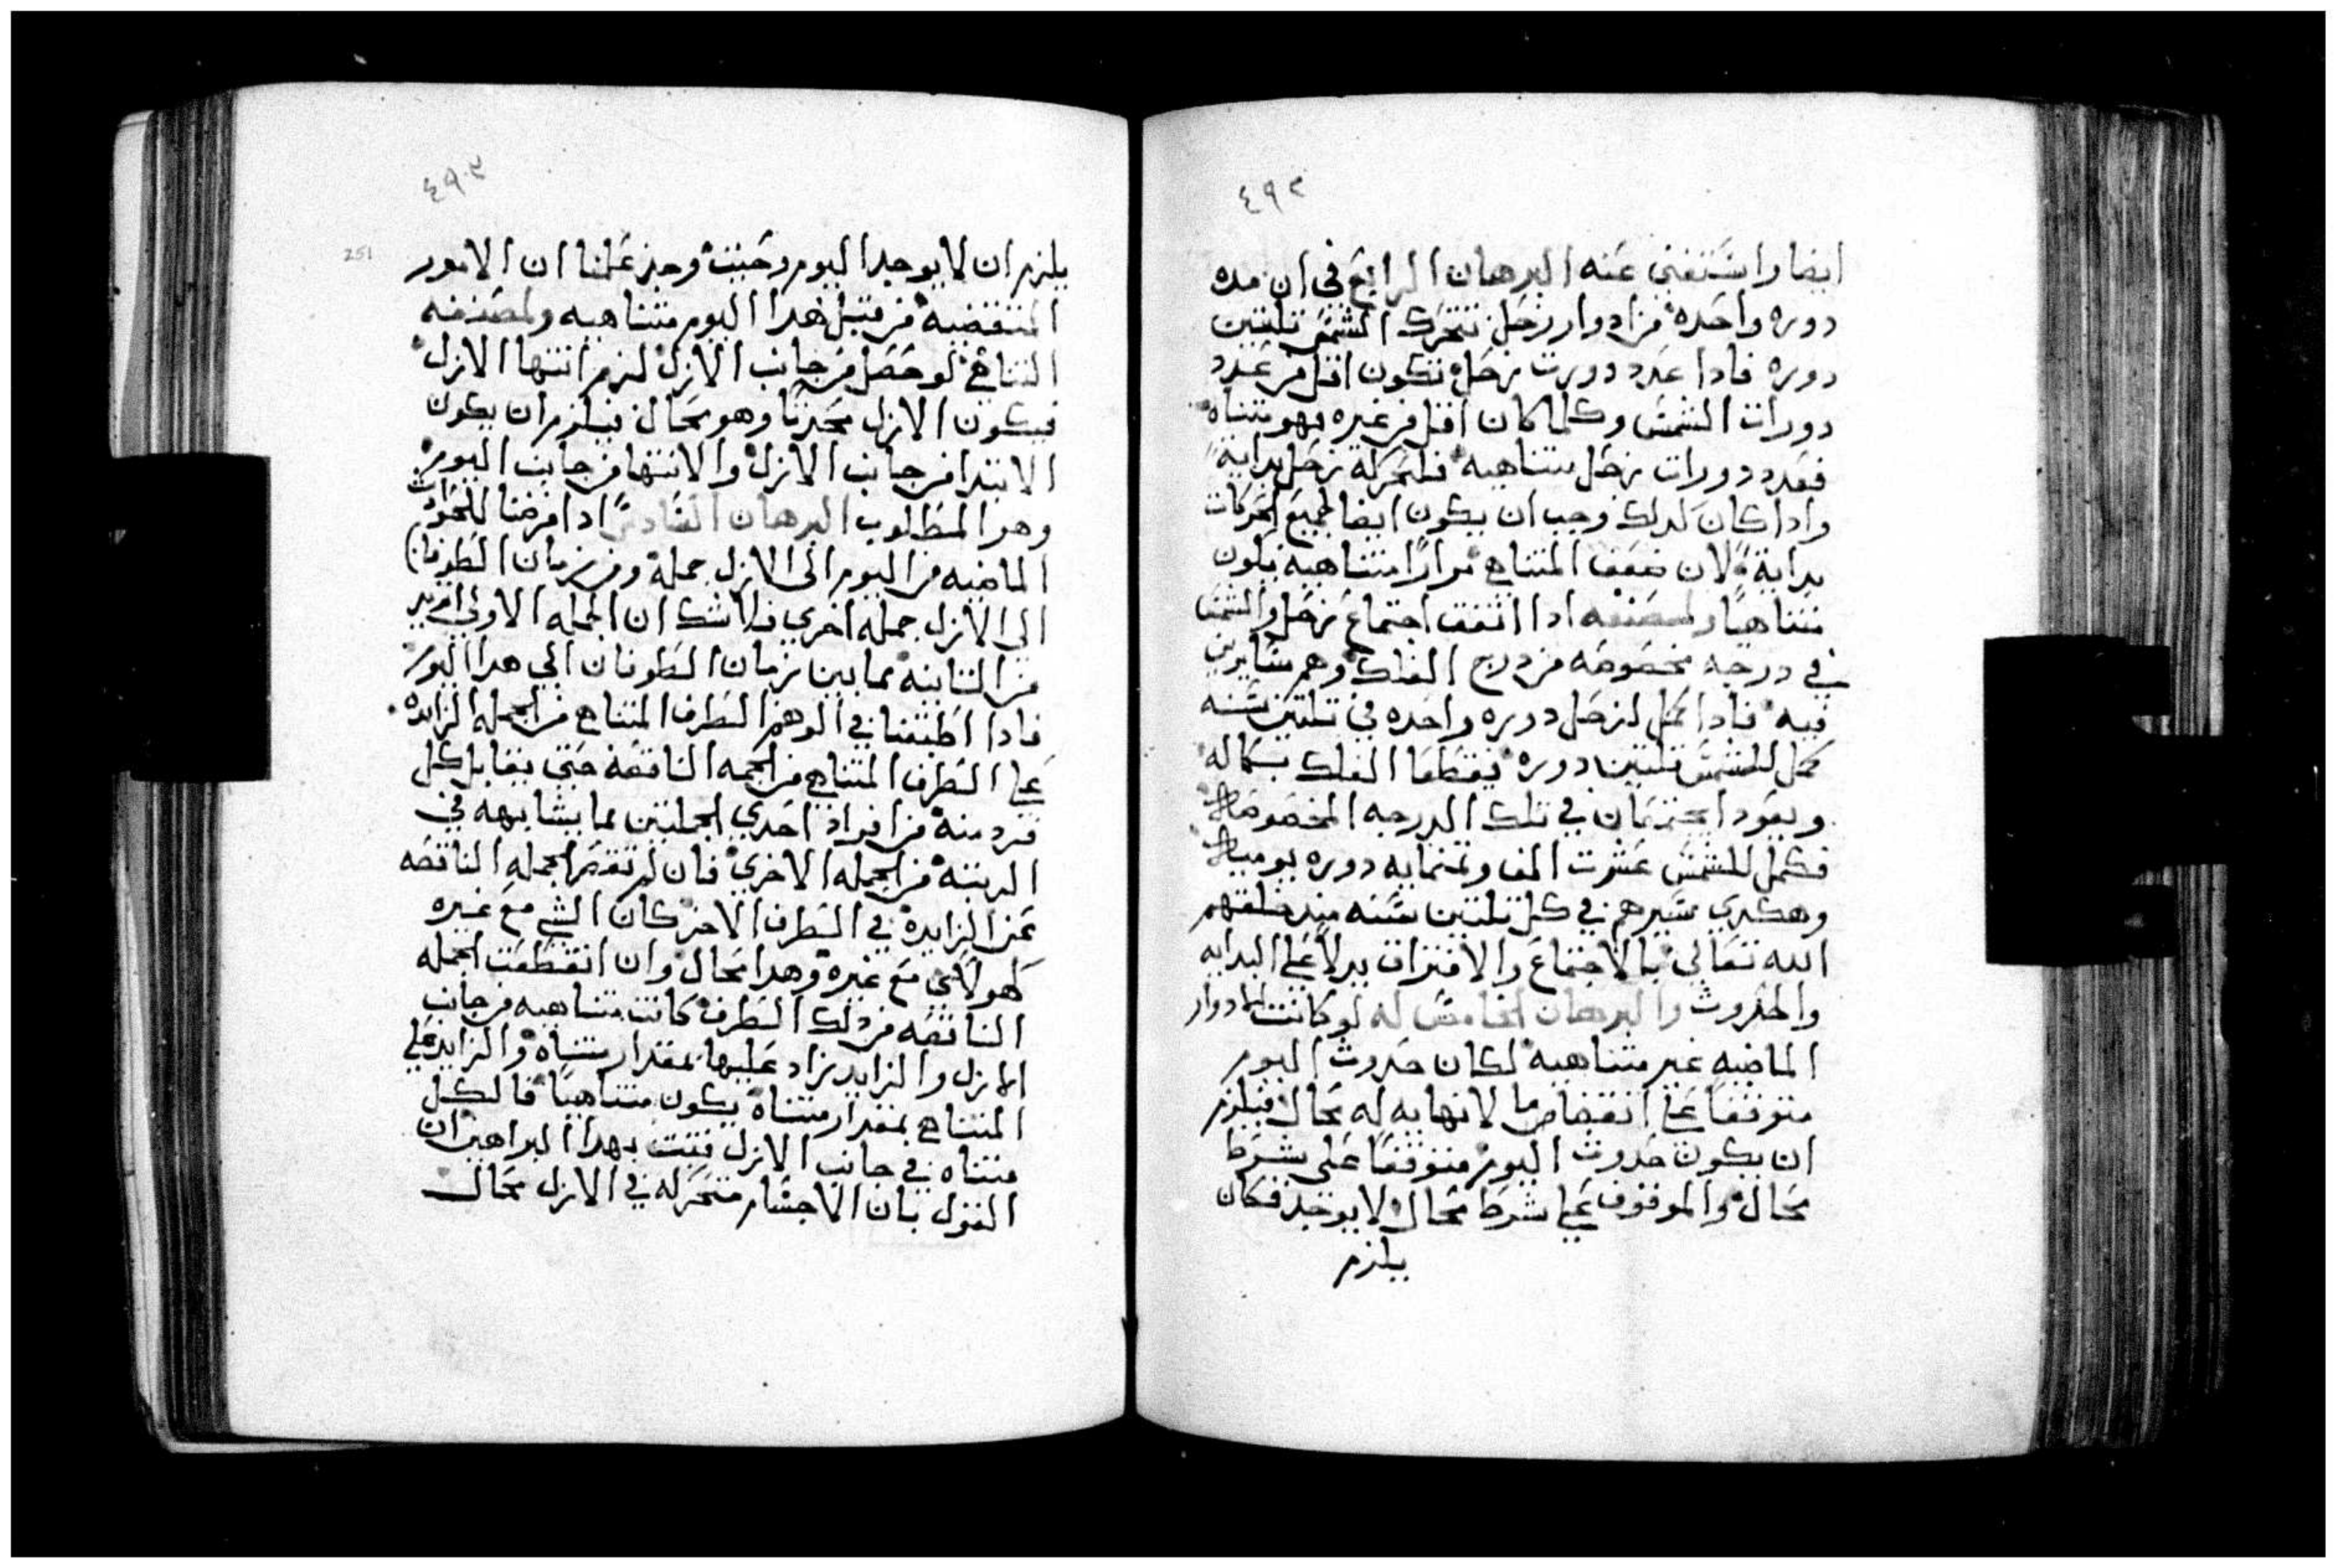 ٤٩٢
ايضا واستغني عنه البرهان الرابع في ان مده
دوره واحده من ادوار زحل تتحرك الشمس تلتين
دوره فادا عدد دورت زحل تكون اقل من عدد
دورات الشمس وكلما كان اقل من غيره فهو متناه
فعدد دورات زحل متناهيه فلحركة زحل بداية
وادا كان كدلك وجب ان يكون ايضا لجميع الحركات
بداية لان ضعف المتناهي مرارًا متناهيه يكون
متناهيًا ولمصنفه ادا اتفق اجتماع زحل والشمس
في درجه مخصوصه من درج الفلك وهم سايرين
فيه فادا كمل لزحل دوره واحده في تلتين سنه
كمل للشمس تلتين دوره يقطعا الفلك بكماله
ويعودا يجتمعان في تلك الدرجه المخصوصه
فكمل للشمس عشرت الف وتمنمايه دوره يوميه
وهكدي سيرهم في كل تلتين سنه مند خلقهم
الله تعالي بالاجتماع والافتراق يدلا علي البدايه
والحدوث والبرهان الخامس له لو كانت الادوار
الماضيه غير متناهيه لكان حدوث اليوم
متوقفا علي انقضا ما لا نهايه له محال فيلزم
ان يكون حدوث اليوم متوقفا على شرط
محال والموقوف علي شرط محال لا يوجد فكان
يلزم
٤٩٣
251
يلزم ان لا يوجد اليوم وحيت وجد علمنا ان الامور
المنقضيه من قبل هدا اليوم متناهيه ولمصنفه
التناهي لو حصل من جانب الازل لزم انتها الازل
فيكون الازل محدثا وهو محال فيلزم ان يكون
الابتدا من جانب الازل والانتها من جانب اليوم
وهو المطلوب البرهان السادس ادا فرضنا للحوادث
الماضيه من اليوم الى الازل جملة ومن زمان الطوفان
الي الازل جمله اخري فلا شك ان الجمله الاولي ازيد
من التانيه بما بين زمان الطوفان الي هدا اليوم
فادا اطبقنا في الوهم الطرف المتناهي من الجمله الزايده
علي الطرف المتناهي من الجمه الناقصه حتي يقابل كل
فرد منه من افراد احدي الجملتين بما يشابهه في
الرتبه من الجمله الاخري فان لم تقصر الجمله الناقصه
عن الزايده في الطرف الاخر كان الشي مع غيره
كهو لا مع غيره وهدا محال وان انقطعت الجمله
الناقصه من دلك الطرف كانت متناهيه من جانب
الازل والزايد زاد عليها بمقدار متناه والزايد علي
المتناهي بمقدار متناه يكون متناهيا فالكل
متناه في جانب الازل فتبت بهدا البراهين ان
القول بان الاجسام متحركه في الازل محال